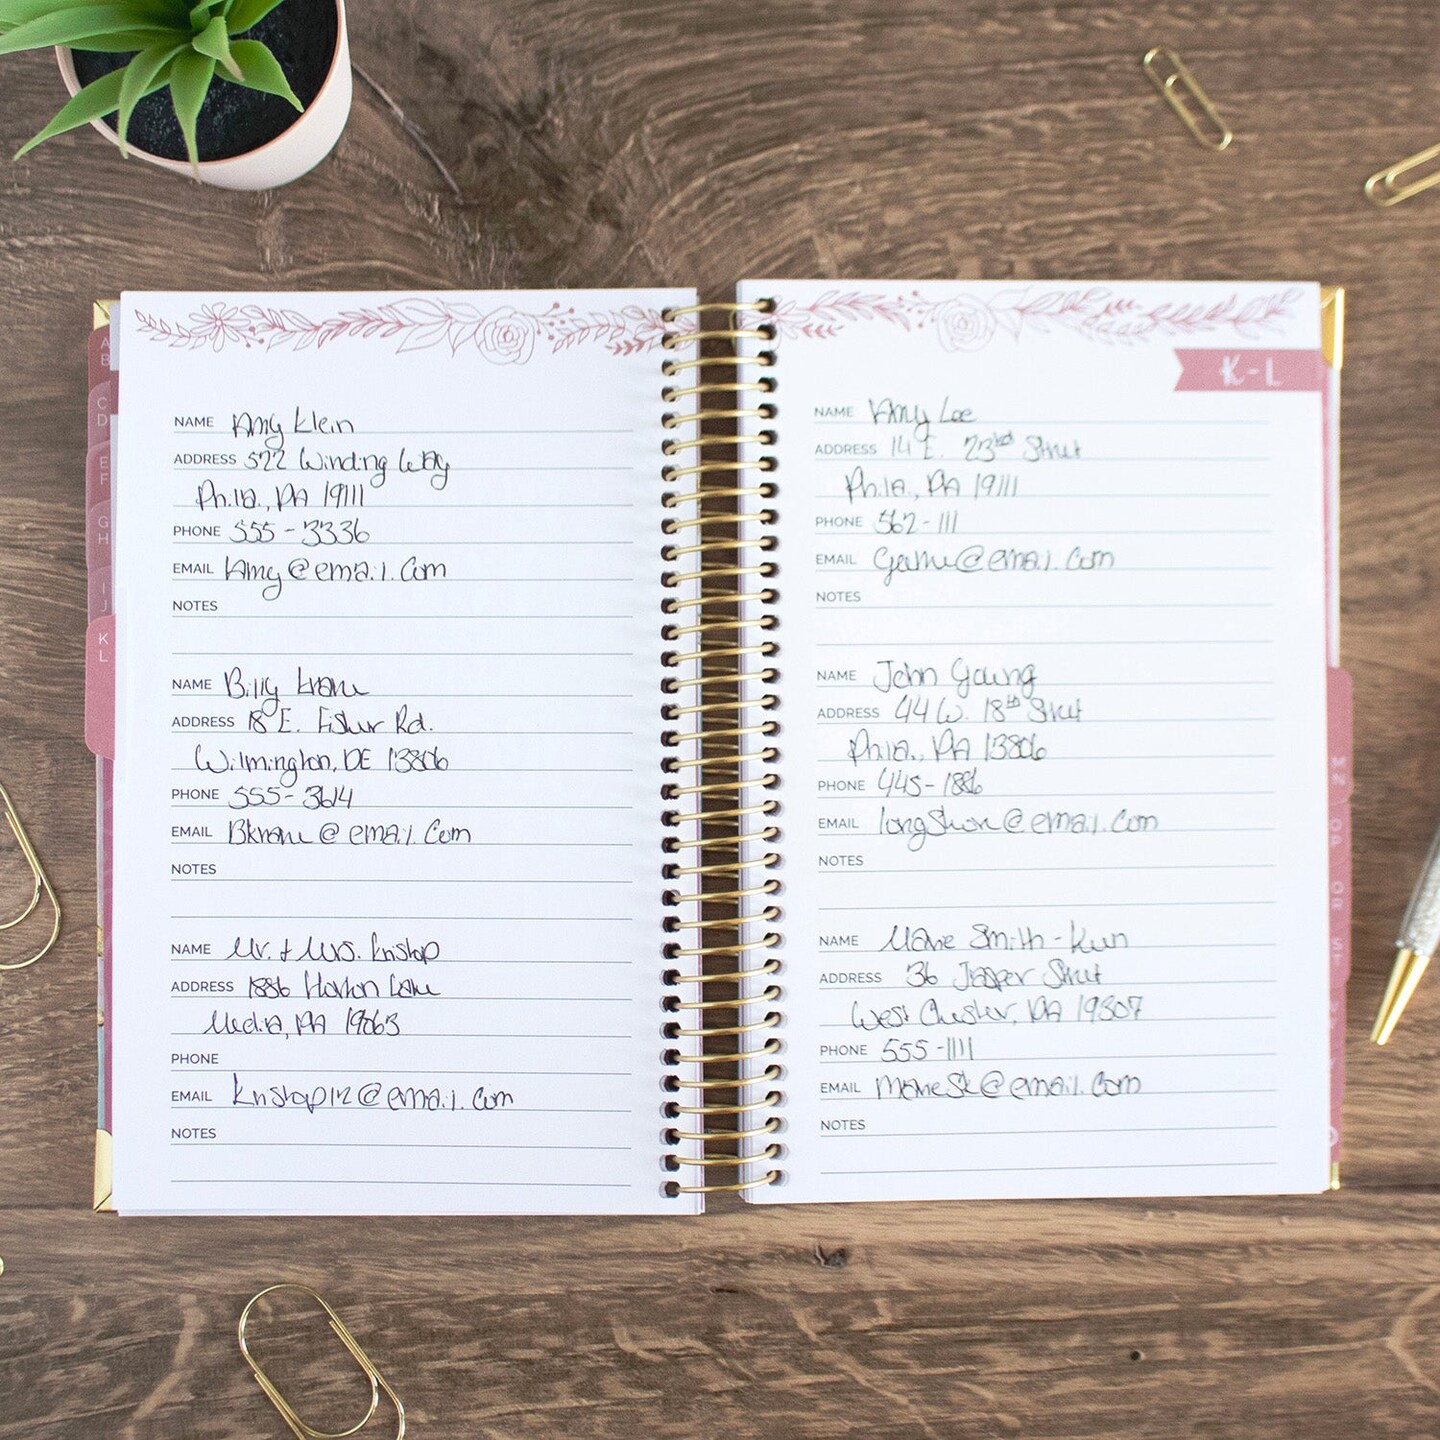 A
B
C
D
E
F
G
H
I
J
K
L
NAME Amy Klein
ADDRESS 522 Winding Way
Phila., PA 19111
PHONE 555-3336
EMAIL Amy@email.com
NOTES
NAME Billy Krane
ADDRESS 18 E. Fisher Rd.
Wilmington, DE 13806
PHONE 555-3614
EMAIL Bkrane@email.com
NOTES
NAME Mr. & Mrs. Knstop
ADDRESS 1886 Horton Lane
Media, PA 19063
PHONE
EMAIL Knstop12@email.com
NOTES
K-L
NAME Amy Lee
ADDRESS 14 E. 23rd Street
Phila., PA 19111
PHONE 562-111
EMAIL @email.com
NOTES
NAME John Young
ADDRESS 44 W. 18th Street
Phila., PA 13806
PHONE 445-1886
EMAIL @email.com
NOTES
NAME Marie Smith-Kun
ADDRESS 36 Jasper Street
West Chester, PA 19307
PHONE 555-1111
EMAIL MarieSK@email.com
NOTES
M
N
O
P
Q
R
S
T